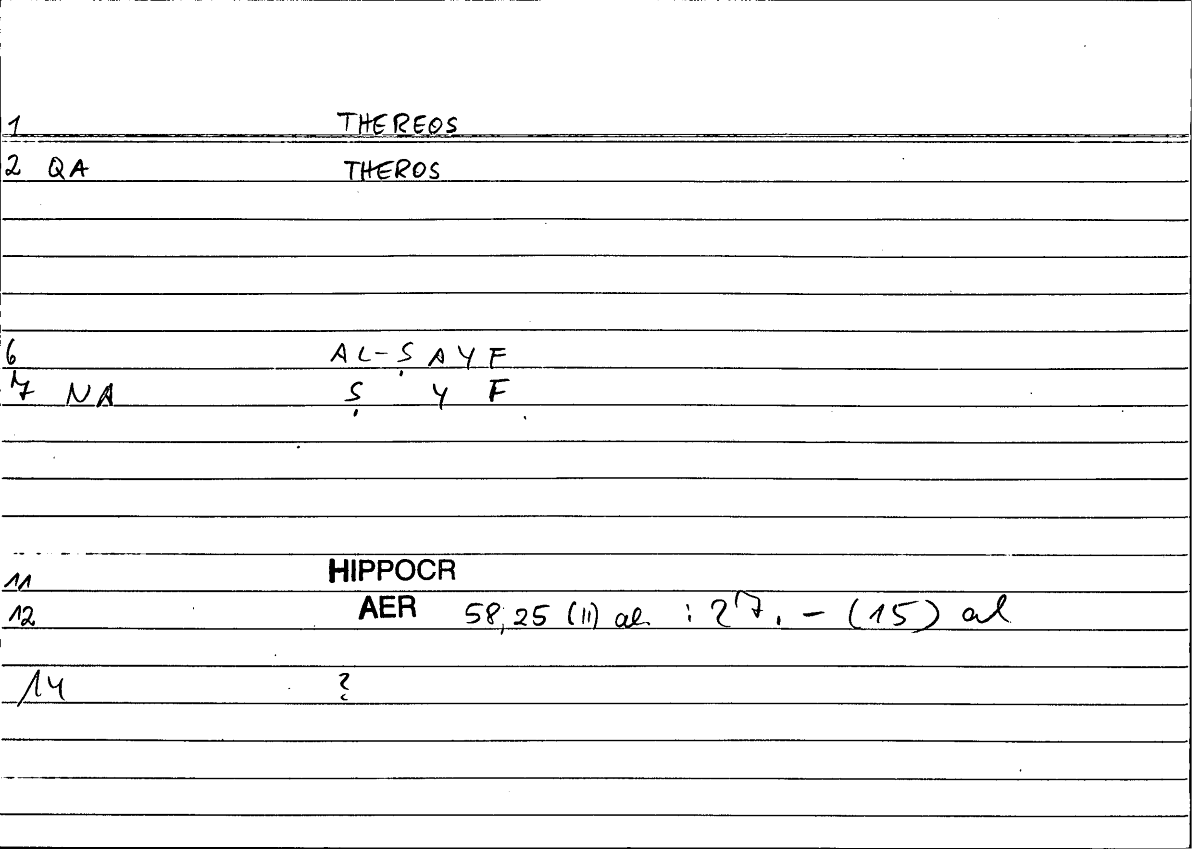 1 THEREOS
2 QA THEROS
6 AL-ṢAYF
7 NA Ṣ Y F
11 HIPPOCR
12 AER 58,25 (11) al. : 27. – (15) al
14 ?